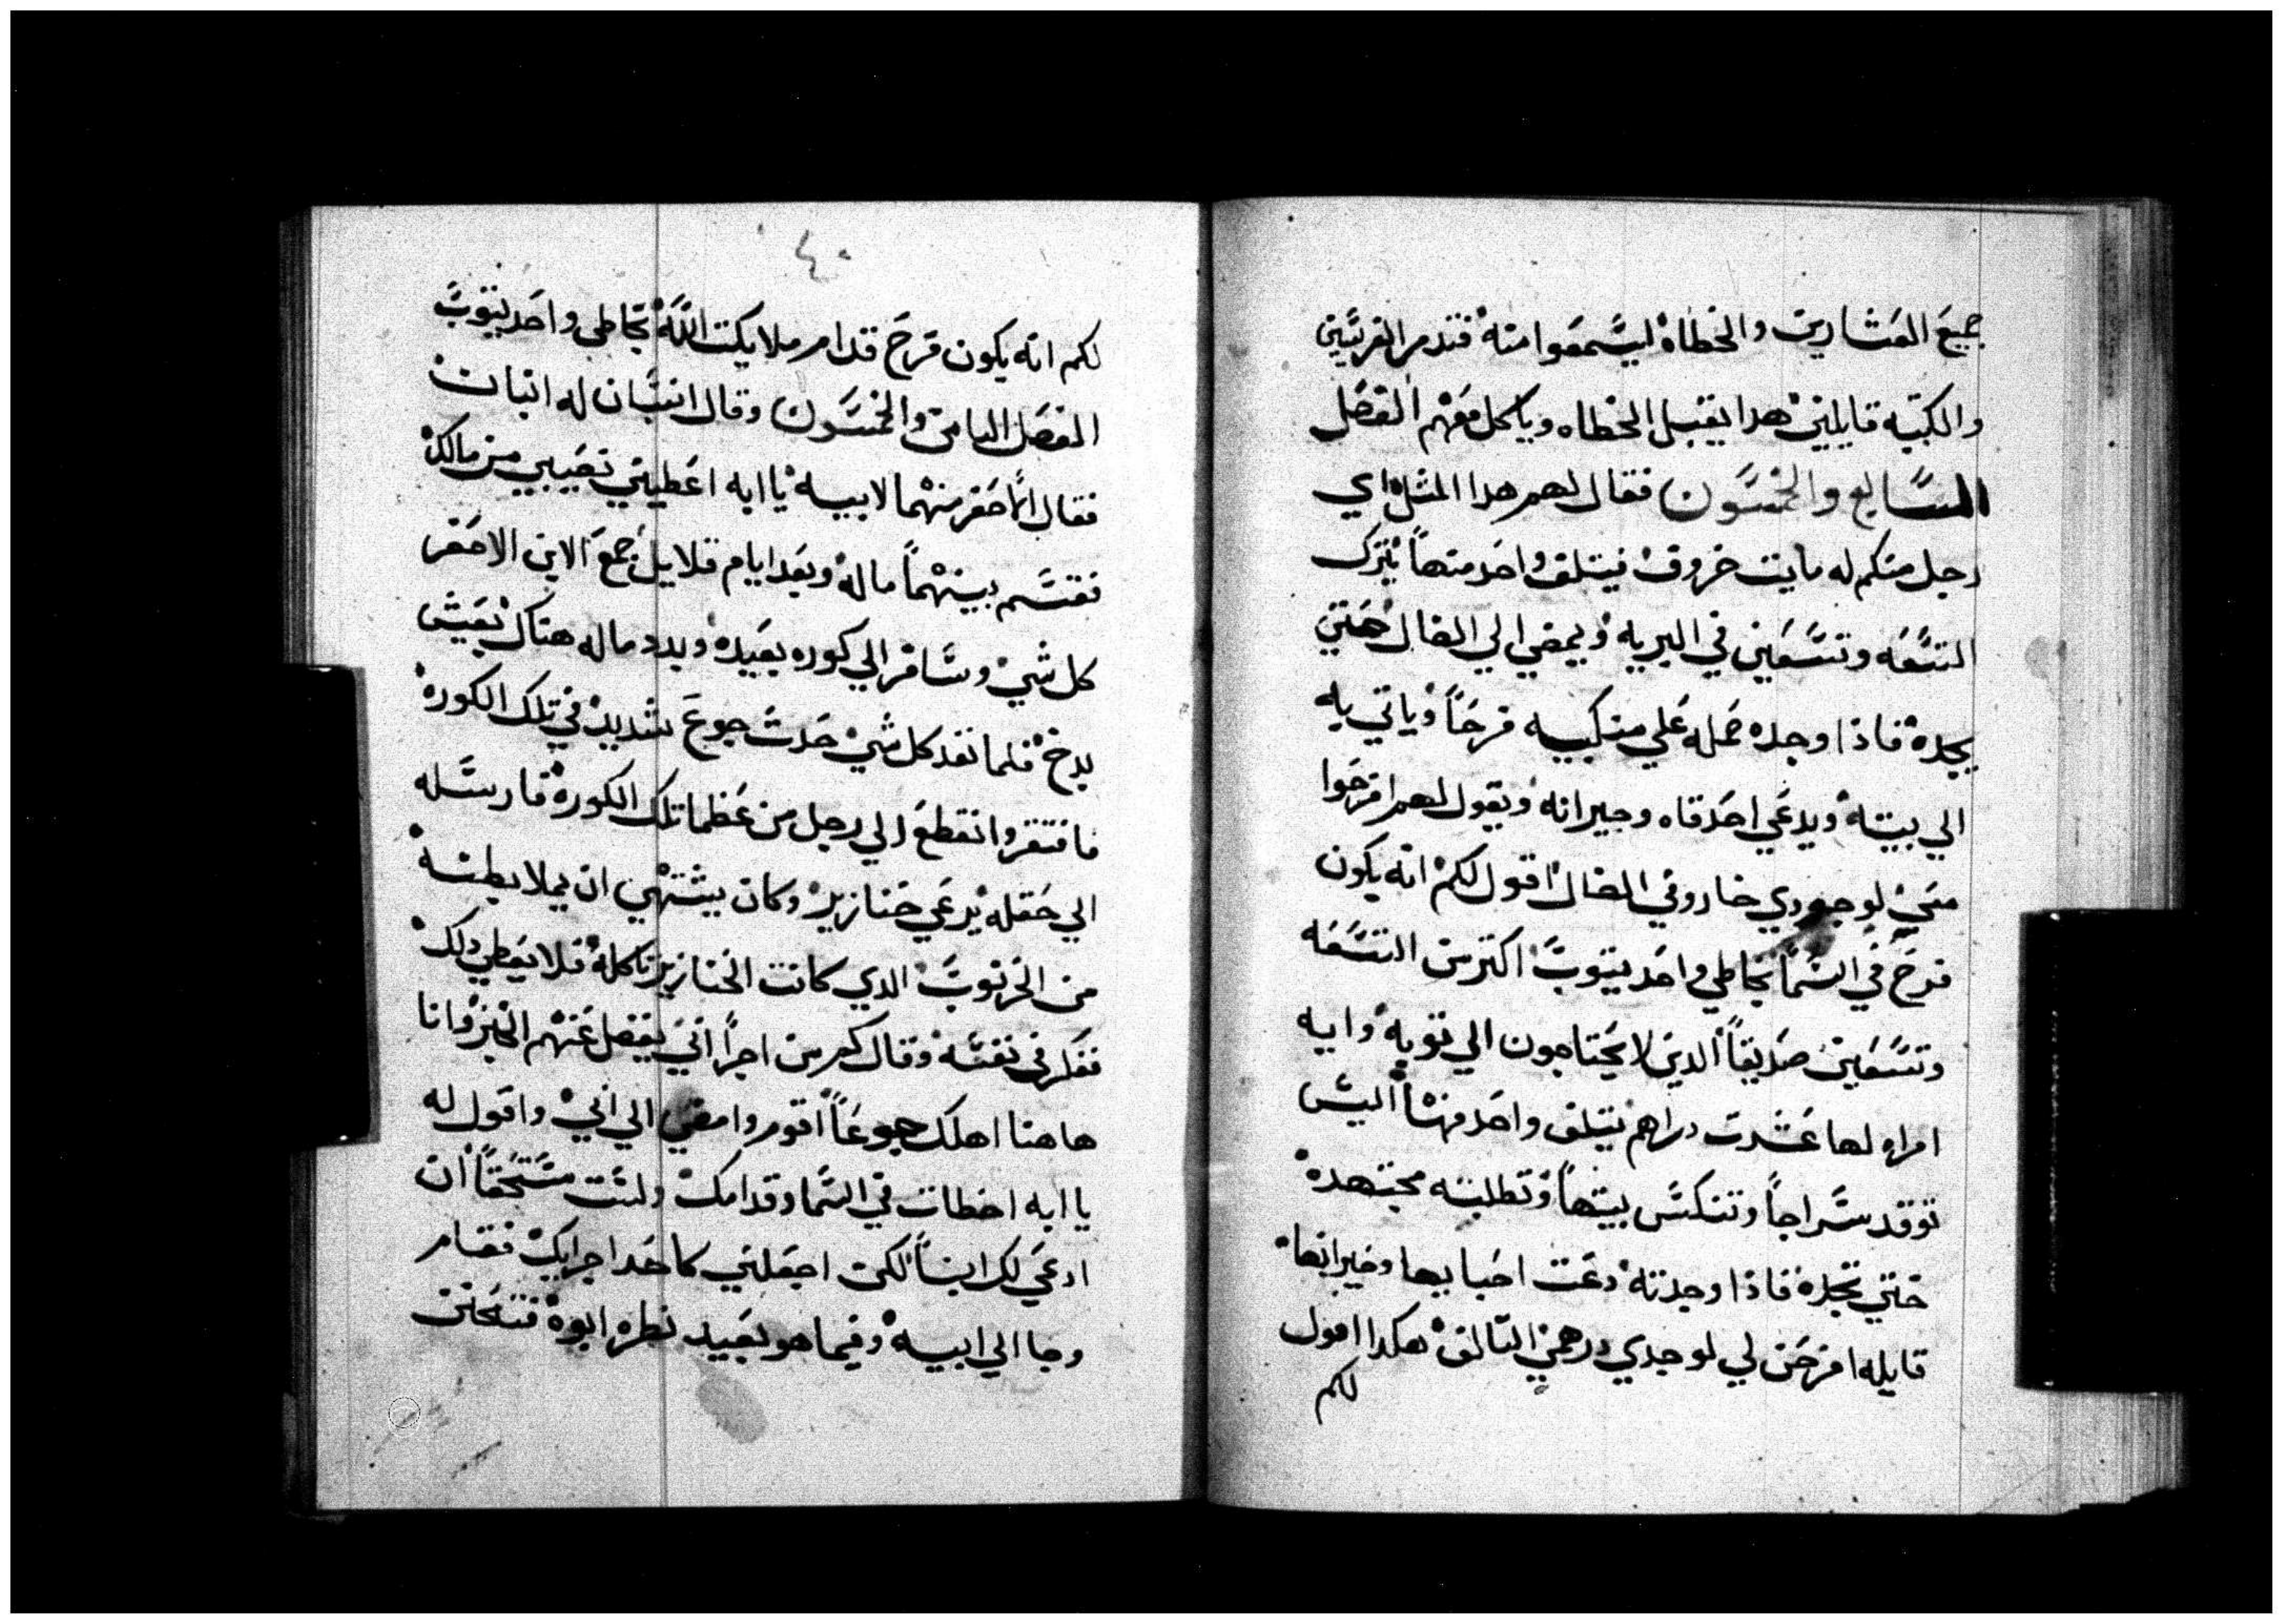 جميعَ العَشارين والخطاهْ ليسَّمعَوا منهْ فتذمر الفريسَّين
والكتبه قايلينْ هدا يقبل الخطاه وياكل معَهْم الفصَل
السَّابع والخمسَّون فقال لهم هدا المثل اي
رجل منكم له مايت خروفْ فيتلف واحَد منهاً يْترك
التسَّعَه وتسَّعَين في البريه ْويمضي الي الضال حَتي
يجدهْ فاذا وجده حَمله عَلي منكبيه فرحَاً وْياتي به
الي بيتهْ ويدعَي اصَدقاه وجيرانه ْويقول لهم افرحَوا
معَيْ لوجودي خاروفي الضالْ اقول لكمْ انه يكون
فرحَ في السَّماً بخاطي واحَد يتوبَّ اكتر من التسَّعَه
وتسَّعَينْ صَديقاً الدين لا يحَتاجون الي توبهْ وايه
امراه لها عَشرت دراهم يتلف واحَد منهاْ اليسَّ
توقد سَّراجاً وتنكسَّ بيتهاً وْتطلبه مجتهدهْ
حَتي تجدهْ فاذا وجدتهْ دعَت احَبابها وجيرانهاْ
قايله افرحَن لي لوجدي درهمي التالفْ هكدا اقول
لكم
٤٠
لكم انه يكون فرحَ قدام ملايكت اللَّهْ بخاطي واحَد يتوبَّ
الفصَل التامن والخمسَّون وقال انسَّان له ابنان
فقال الاصَغر منهْما لابيهْ يا ابه اعَطيني نصَيبي من مالكْ
فقسَّم بينهْماً مالهْ وبعَد ايام قلايل جمعَ الابن الاصَغر
كل شيْ وسَّافر الي كوره بعَيدهْ وبدد ماله هناك بعَيشَ
بدخْ فلما نفد كل شيْ حَدث جوعَ شديدْ في تلك الكورهْ
فافتقر وانقطعَ الي رجل من عَظما تلك الكورهْ فارسَّله
الي حَقله يْرعَي خنازيرْ وكان يشتهْي ان يملا بطنهْ
من الخرنوبَّ الدي كانت الخنازير تاكلهْ فلا يعَطي دلكْ
ففكر في نفسَّهْ وقال كم من اجراً ابي يفضل عَنهْم الخبز وْانا
هاهنا اهلك جوعَاً اقوم وامضي الي ابيْ واقول له
يا ابه اخطات في السَّما وقدامكْ ولسَّت مسَّتحَقاً ان
ادعَي لك ابناً لكن اجعَلني كاحَد اجرايكْ فقام
وجا الي ابيهْ وفيما هو بعَيد نظره ابوهْ فتحَنن